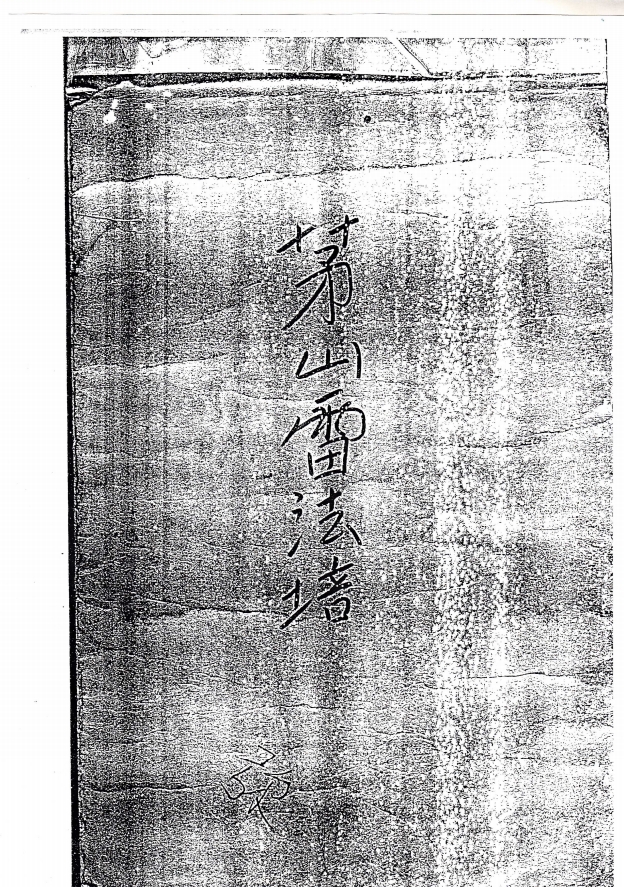 茅山雷法